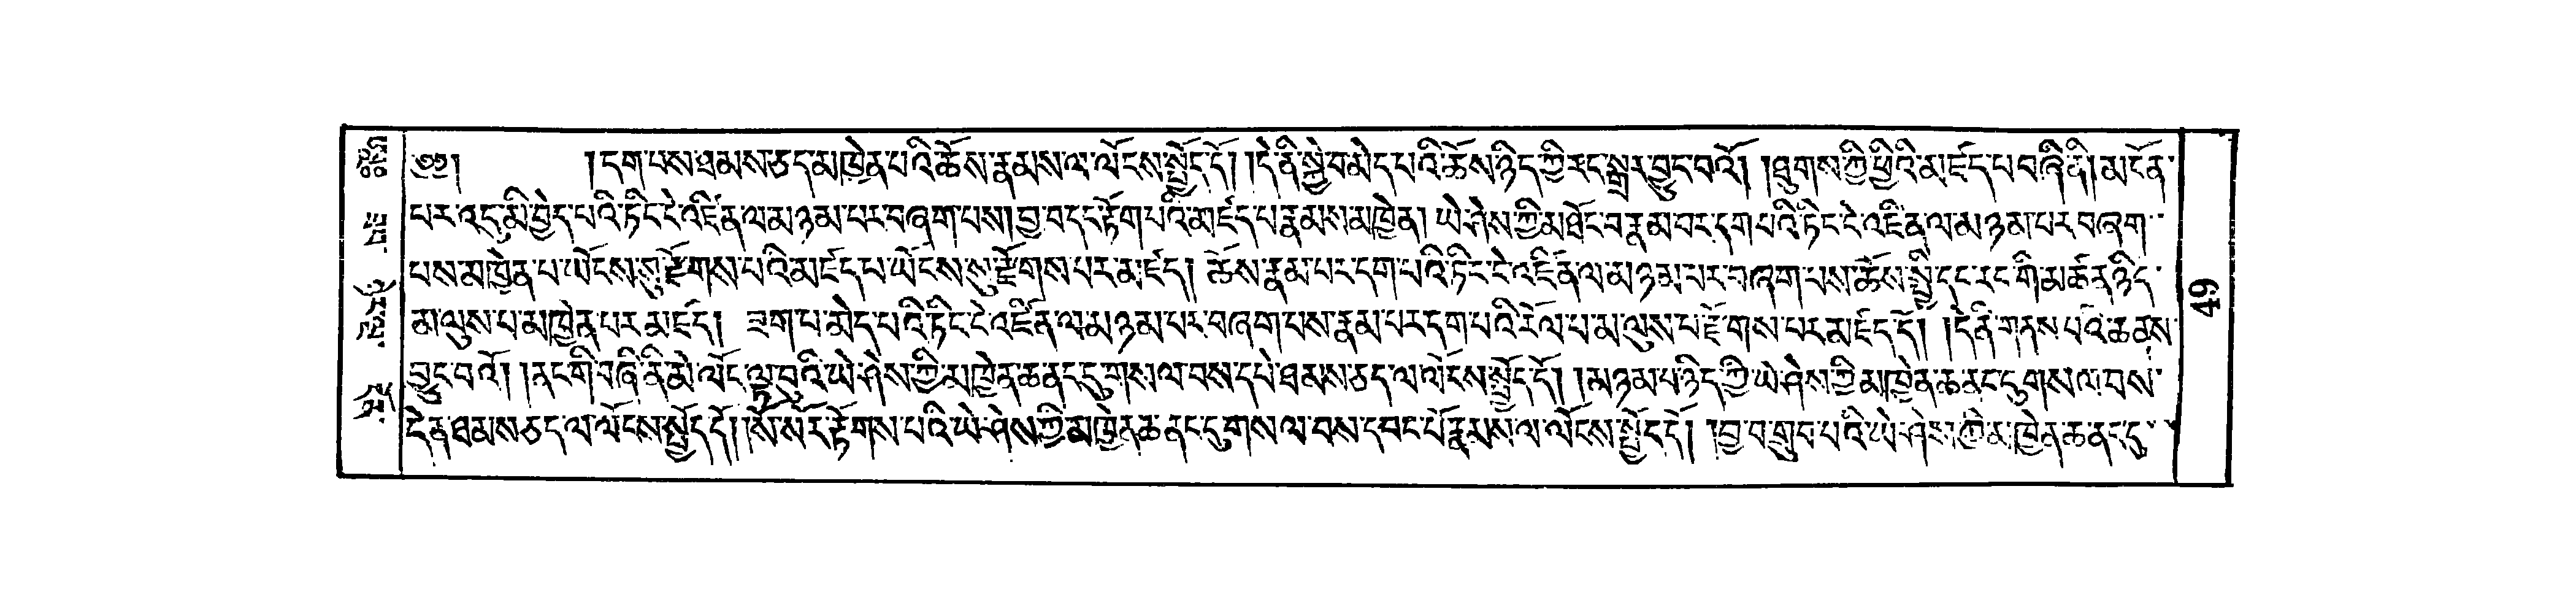 ༄༅། །དག་པས་ཐམས་ཅད་མཁྱེན་པའི་ཆོས་རྣམས་ལ་ལོངས་སྤྱོད་དོ། །དེ་ནི་སྐྱེ་བ་མེད་པའི་ཆོས་ཉིད་ཀྱི་རང་སྒྲར་བྱུང་བའོ། །ཐུགས་ཀྱི་ཕྱིའི་མཛད་པ་བཞི་ནི། མངོན་
པར་འདུ་མི་བྱེད་པའི་ཏིང་ངེ་འཛིན་ལ་མཉམ་པར་བཞག་པས། བྱ་བ་དང་རྟོག་པའི་མཛད་པ་རྣམས་མཁྱེན། ཡེ་ཤེས་ཀྱི་མཐོང་བ་རྣམ་བར་དག་པའི་ཏིང་ངེ་འཛིན་ལ་མཉམ་པར་བཞག་
པས་མཁྱེན་པ་ཡོངས་སུ་རྫོགས་པའི་མཛད་པ་ཡོངས་སུ་རྫོགས་པར་མཛད། ཆོས་རྣམ་པར་དག་པའི་ཏིང་ངེ་འཛིན་ལ་མཉམ་པར་བཞག་པས་ཆོས་སྤྱི་དང་རང་གི་མཚན་ཉིད་
མ་ལུས་པ་མཁྱེན་པར་མཛད། ཟག་པ་མེད་པའི་ཏིང་ངེ་འཛིན་ལ་མཉམ་པར་བཞག་པས་རྣམ་པར་དག་པའི་རོལ་པ་མ་ལུས་པ་རྫོགས་པར་མཛད་དོ། །དེ་ནི་གནས་པའི་ཆནས་
བྱུང་བའོ། །ནང་གི་བཞི་ནི་མེ་ལོང་ལྟ་བུའི་ཡེ་ཤེས་ཀྱི་མཁྱེན་ཆ་ནང་དུ་གསལ་བས་དཔེ་ཐམས་ཅད་ལ་ལོངས་སྤྱོད་དོ། །མཉམ་པ་ཉིད་ཀྱི་ཡེ་ཤེས་ཀྱི་མཁྱེན་ཆ་ནང་དུ་གསལ་བས་
དོན་ཐམས་ཅད་ལ་ལོངས་སྤྱོད་དོ། །སོ་སོར་རྟོགས་པའི་ཡེ་ཤེས་ཀྱི་མཁྱེན་ཆ་ནང་དུ་གསལ་བས་དབང་པོ་རྣམས་ལ་ལོངས་སྤྱོད་དོ། །བྱ་བ་གྲུབ་པའི་ཡེ་ཤེས་ཀྱི་མཁྱེན་ཆ་ནང་དུ་